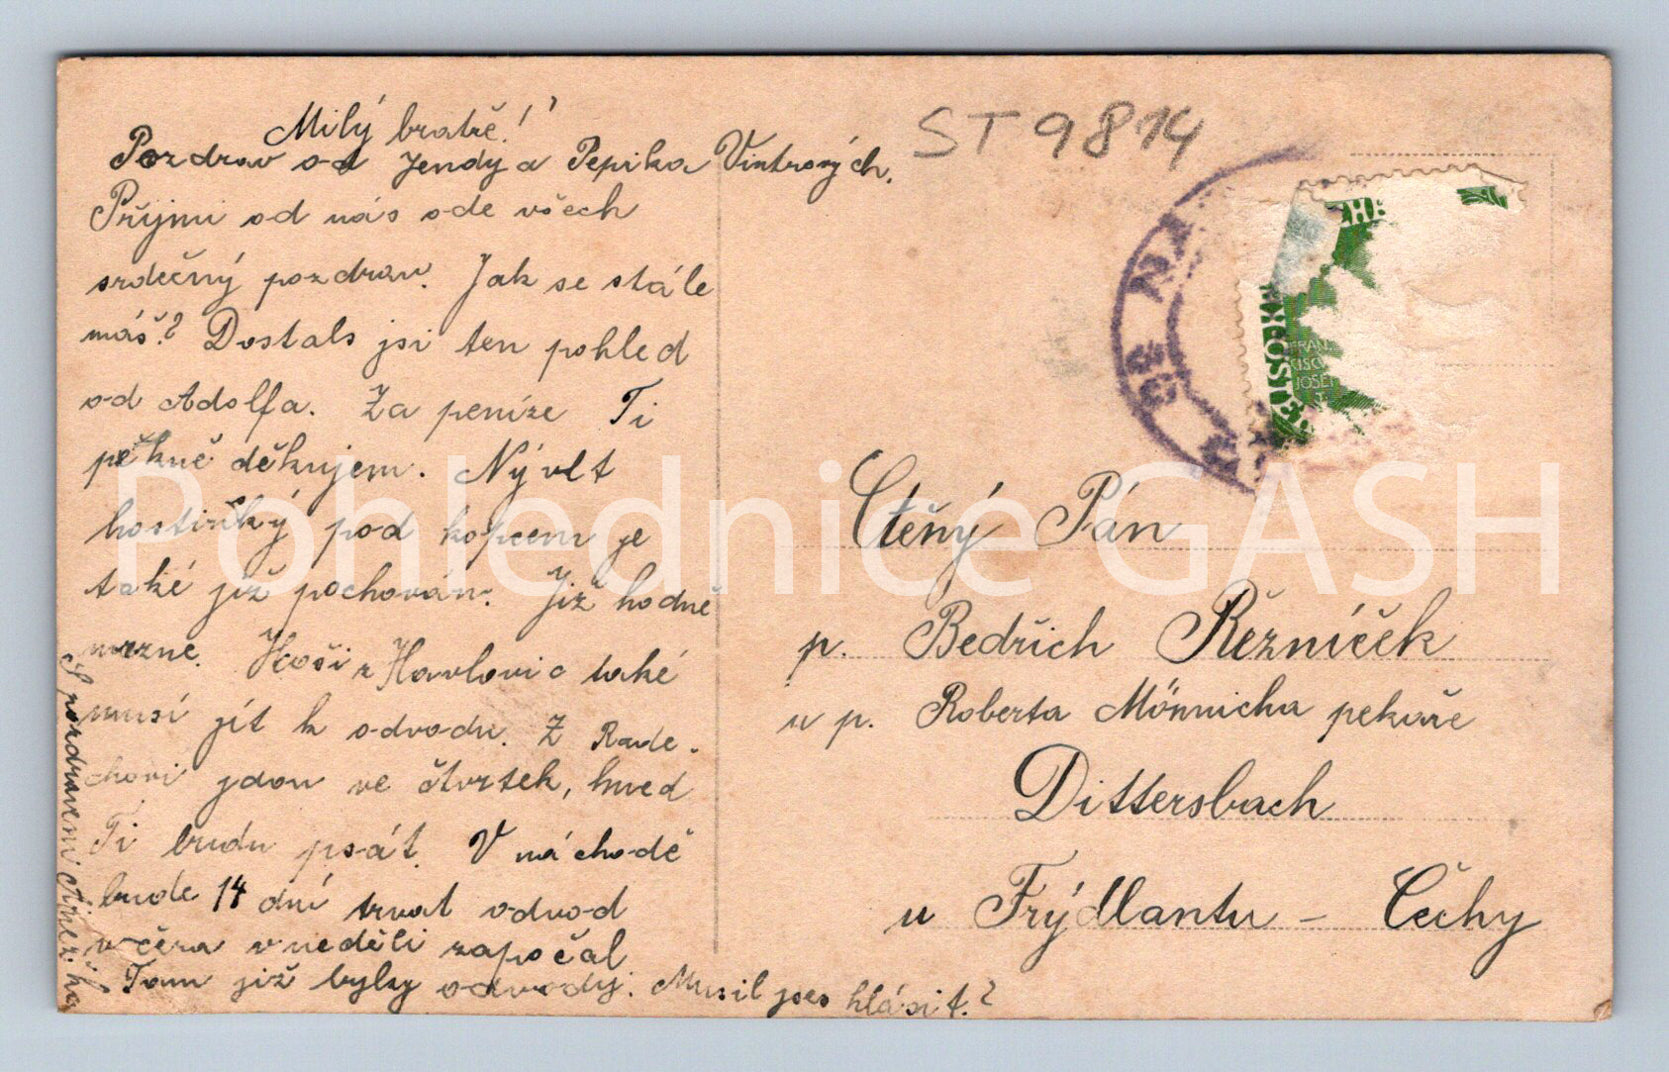 Milý bratře!
Pozdrav od Jendy a Pepika Vintrových.
Přijmi od nás ode všech
srdečný pozdrav. Jak se stále
máš? Dostals jsi ten pohled
od Adolfa. Za peníze Ti
pěkně děkujem. Nývlt
hostinský pod kopcem je
také již pochován. Již hodně
mrzne. Hoši z Havlovic také
musí jít k odvodu. Z Rade-
chovi jdou ve čtvrtek, hned
Ti budu psát. V náchodě
bude 14 dní trvat odvod
včera v neděli započal
Tam již byly odvody. Musil jses hlásit?
S pozdravem Anežka
ST 9814
FRAN
CISC
JOSEF
Ctěný Pán
p. Bedřich Řezníček
u p. Roberta Mönnicha pekaře
Dittersbach
u Frýdlantu – Čechy
Pohlednice GASH